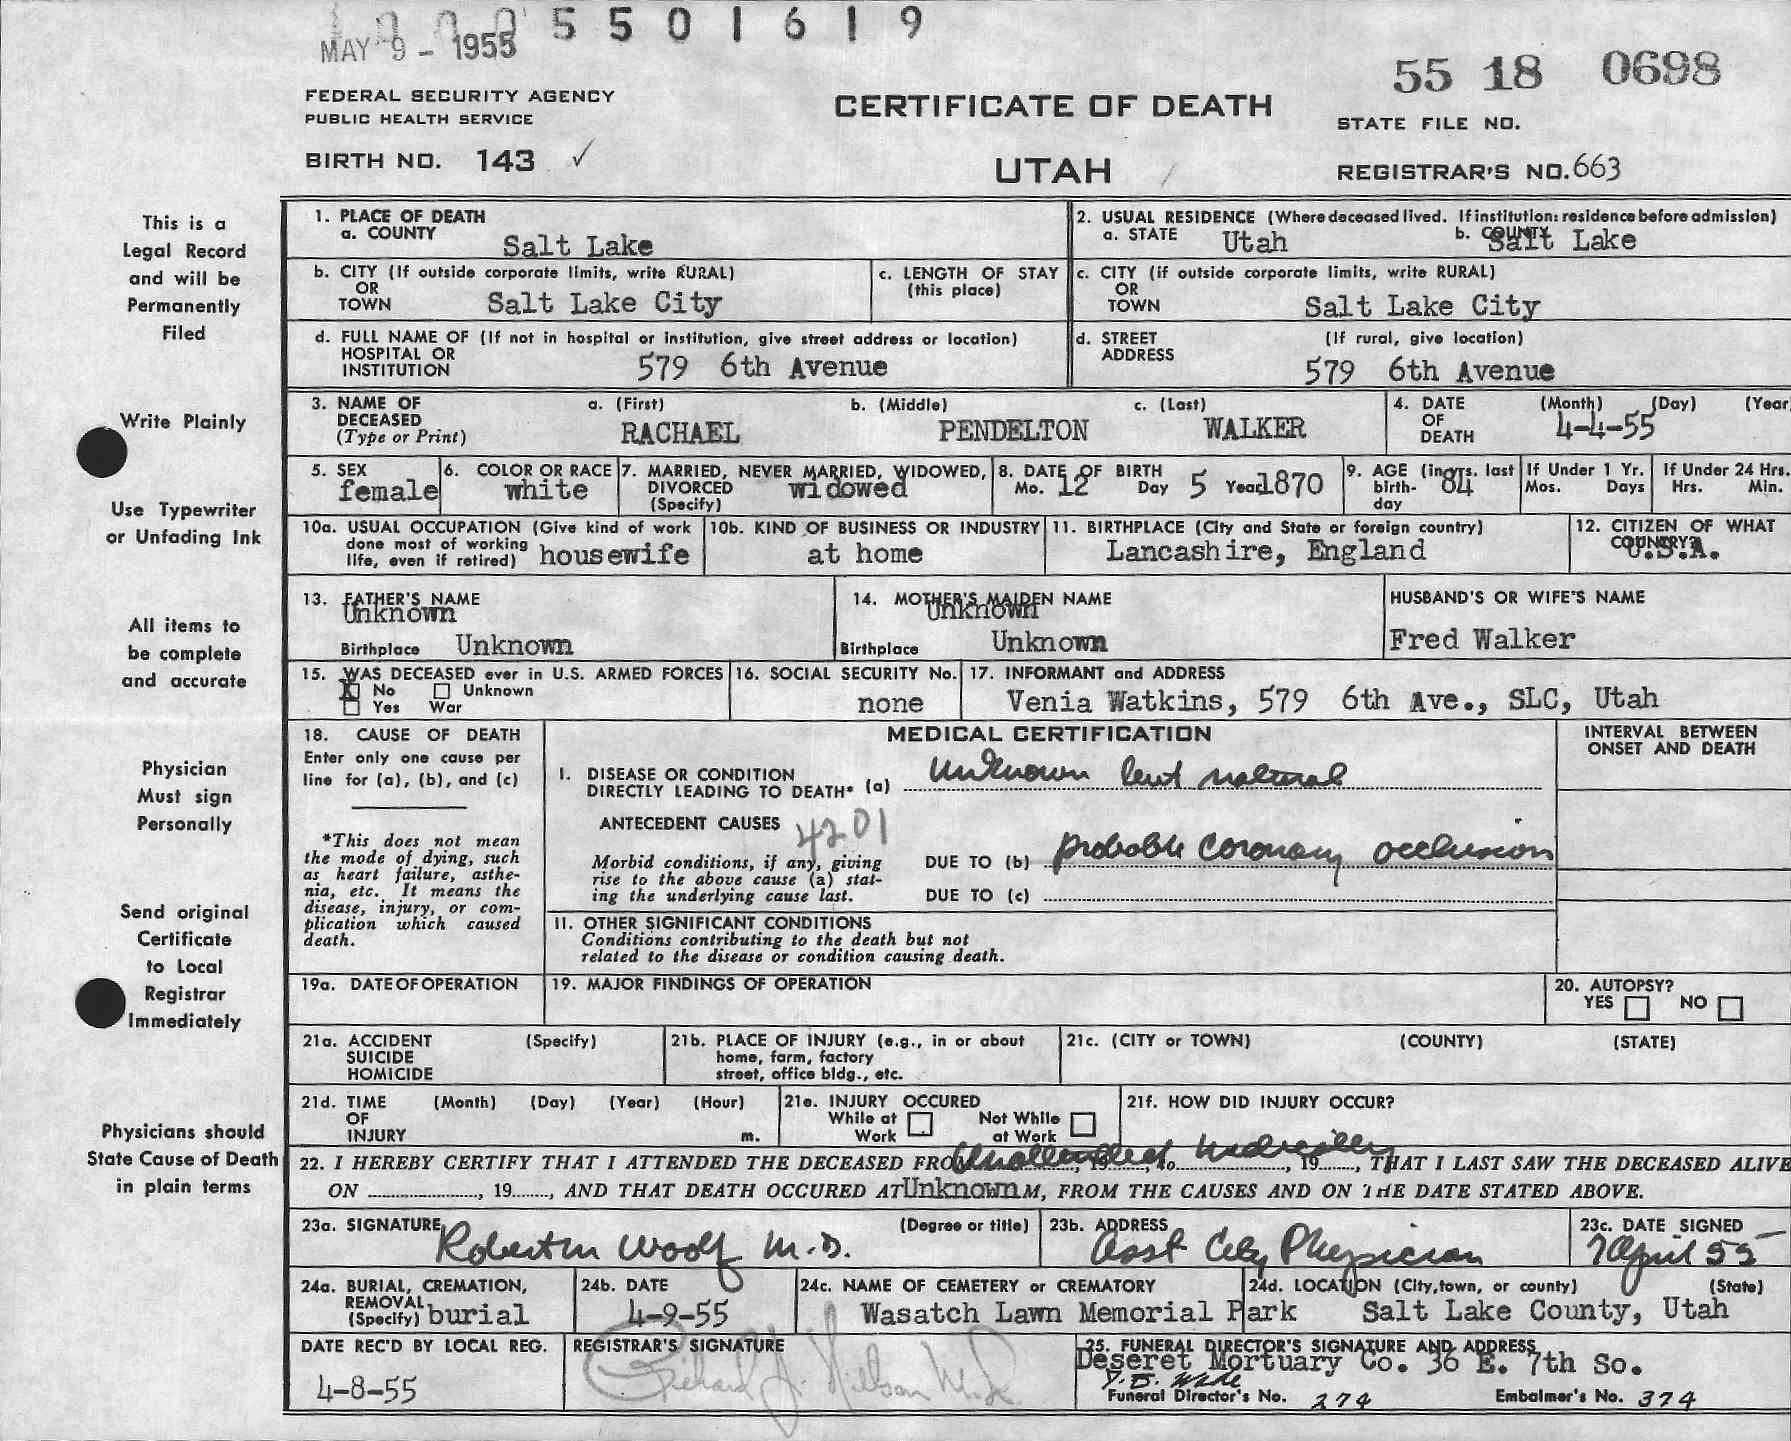 5501619
MAY 9 - 1955
55 18 0698
FEDERAL SECURITY AGENCY
PUBLIC HEALTH SERVICE
CERTIFICATE OF DEATH
STATE FILE NO.
BIRTH NO. 143 ✓
UTAH
REGISTRAR'S NO. 663
This is a
Legal Record
and will be
Permanently
Filed
Write Plainly
Use Typewriter
or Unfading Ink
All items to
be complete
and accurate
Physician
Must sign
Personally
Send original
Certificate
to Local
Registrar
Immediately
Physicians should
State Cause of Death
in plain terms
1. PLACE OF DEATH
a. COUNTY Salt Lake
2. USUAL RESIDENCE (Where deceased lived. If institution: residence before admission)
a. STATE Utah b. COUNTY Salt Lake
b. CITY (If outside corporate limits, write RURAL)
OR
TOWN Salt Lake City
c. LENGTH OF STAY
(this place)
c. CITY (if outside corporate limits, write RURAL)
OR
TOWN Salt Lake City
d. FULL NAME OF (If not in hospital or institution, give street address or location)
HOSPITAL OR
INSTITUTION 579 6th Avenue
d. STREET (If rural, give location)
ADDRESS
579 6th Avenue
3. NAME OF a. (First) b. (Middle) c. (Last)
DECEASED
(Type or Print) RACHAEL PENDELTON WALKER
4. DATE (Month) (Day) (Year
OF
DEATH 4-4-55
5. SEX
female
6. COLOR OR RACE
white
7. MARRIED, NEVER MARRIED, WIDOWED,
DIVORCED widowed
(Specify)
8. DATE OF BIRTH
Mo. 12 Day 5 Year 1870
9. AGE (in yrs. last
birth- 84
day
If Under 1 Yr.
Mos. Days
If Under 24 Hrs.
Hrs. Min.
10a. USUAL OCCUPATION (Give kind of work
done most of working
life, even if retired) housewife
10b. KIND OF BUSINESS OR INDUSTRY
at home
11. BIRTHPLACE (City and State or foreign country)
Lancashire, England
12. CITIZEN OF WHAT
COUNTRY?
U.S.A.
13. FATHER'S NAME
Unknown
Birthplace Unknown
14. MOTHER'S MAIDEN NAME
Unknown
Birthplace Unknown
HUSBAND'S OR WIFE'S NAME
Fred Walker
15. WAS DECEASED ever in U.S. ARMED FORCES
X No Unknown
Yes War
16. SOCIAL SECURITY No.
none
17. INFORMANT and ADDRESS
Venia Watkins, 579 6th Ave., SLC, Utah
18. CAUSE OF DEATH
Enter only one cause per
line for (a), (b), and (c)
*This does not mean
the mode of dying, such
as heart failure, asthe-
nia, etc. It means the
disease, injury, or com-
plication which caused
death.
MEDICAL CERTIFICATION
INTERVAL BETWEEN
ONSET AND DEATH
I. DISEASE OR CONDITION
DIRECTLY LEADING TO DEATH* (a) Unknown but natural
ANTECEDENT CAUSES 4201
Morbid conditions, if any, giving
rise to the above cause (a) stat-
ing the underlying cause last.
DUE TO (b) probable coronary occlusion
DUE TO (c)
II. OTHER SIGNIFICANT CONDITIONS
Conditions contributing to the death but not
related to the disease or condition causing death.
19a. DATE OF OPERATION
19. MAJOR FINDINGS OF OPERATION
20. AUTOPSY?
YES NO
21a. ACCIDENT (Specify)
SUICIDE
HOMICIDE
21b. PLACE OF INJURY (e.g., in or about
home, farm, factory
street, office bldg., etc.
21c. (CITY or TOWN) (COUNTY) (STATE)
21d. TIME (Month) (Day) (Year) (Hour)
OF
INJURY m.
21e. INJURY OCCURED
While at Not While
Work at Work
21f. HOW DID INJURY OCCUR?
Unattended medically
22. I HEREBY CERTIFY THAT I ATTENDED THE DECEASED FROM, 19, to, 19, THAT I LAST SAW THE DECEASED ALIVE
ON, 19, AND THAT DEATH OCCURED AT Unknown M, FROM THE CAUSES AND ON THE DATE STATED ABOVE.
23a. SIGNATURE (Degree or title)
Robert M Woolf M.D.
23b. ADDRESS
Asst City Physician
23c. DATE SIGNED
7 April 55
24a. BURIAL, CREMATION,
REMOVAL
(Specify) burial
24b. DATE
4-9-55
24c. NAME OF CEMETERY or CREMATORY
Wasatch Lawn Memorial Park
24d. LOCATION (City, town, or county) (State)
Salt Lake County, Utah
DATE REC'D BY LOCAL REG.
4-8-55
REGISTRAR'S SIGNATURE
Richard J. Nillson M.D.
25. FUNERAL DIRECTOR'S SIGNATURE AND ADDRESS
Deseret Mortuary Co. 36 E. 7th So.
Funeral Director's No. 274 Embalmer's No. 374